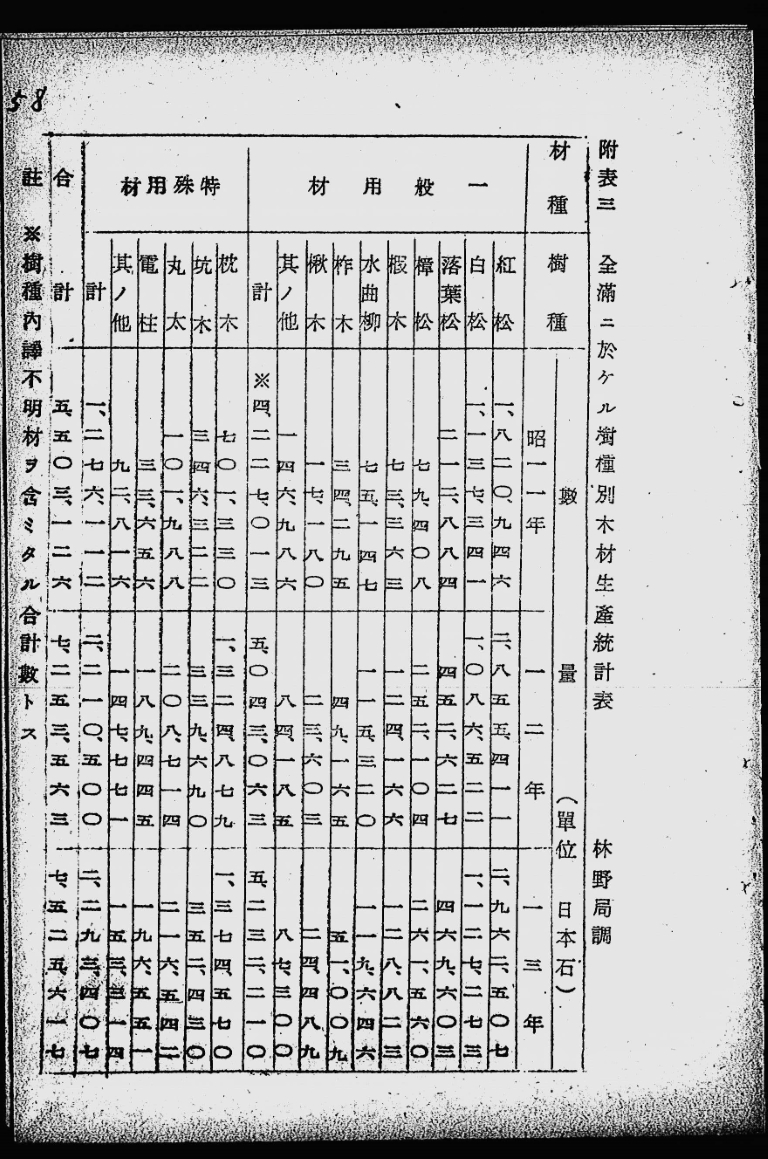 附表三 全滿ニ於ケル樹種別木材生產統計表 林野局調
數量 （單位 日本石）
材種 樹種 昭一一年 一二年 一三年
一般用材
紅松 一、八二〇、九四六 二、八五五、四一一 二、九六二、五〇七
白松 一、一三七、三四一 一、〇八六、五二二 一、一二七、二七三
落葉松 二一二、八八四 四五二、六二七 四六九、六〇三
樟松 七九、四〇八 二五二、一〇四 二六一、五六〇
椴木 七三、三六三 一二四、一六六 一二八、八二三
水曲柳 七五、一四七 一一五、三二〇 一一九、六四六
柞木 三四、二九五 四九、一六五 五一、〇〇九
楸木 一七、一八〇 二三、六〇三 二四、四八九
其ノ他 一四六、九八六 八四、一八五 八七、三〇〇
計 ※四、二二七、〇一三 五、〇四三、〇六三 五、二三二、二一〇
特殊用材
枕木 七〇一、三三〇 一、三二四、八七九 一、三七四、五七〇
坑木 三四六、三二二 三三九、六九〇 三五二、四三〇
丸太 一〇一、九八八 二〇八、七一四 二一六、五四二
電柱 三三、六五六 一八九、四四五 一九六、五五一
其ノ他 九二、八一六 一四七、七七一 一五三、三一四
計 一、二七六、一一二 二、二一〇、五〇〇 二、二九三、四〇七
合計 五、五〇三、一二六 七、二五三、五六三 七、五二五、六一七
註 ※樹種內譯不明材ヲ含ミタル合計數トス
58